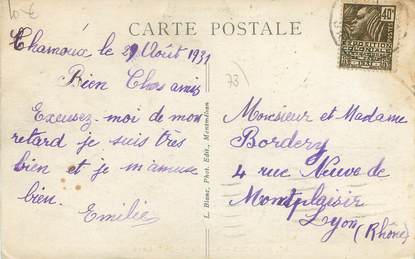 10 €
CARTE POSTALE
Chamoux le 29 Août 1931
Bien Chers amis
Excusez-moi de mon
retard je suis très
bien et je m'amuse
bien.
Emilie
L. Blanc, Phot. Edit., Montmélian
73
Monsieur et Madame
Bordery
4 rue Neuve de
Montplaisir
Lyon
(Rhône)
40c
EXPOSITION